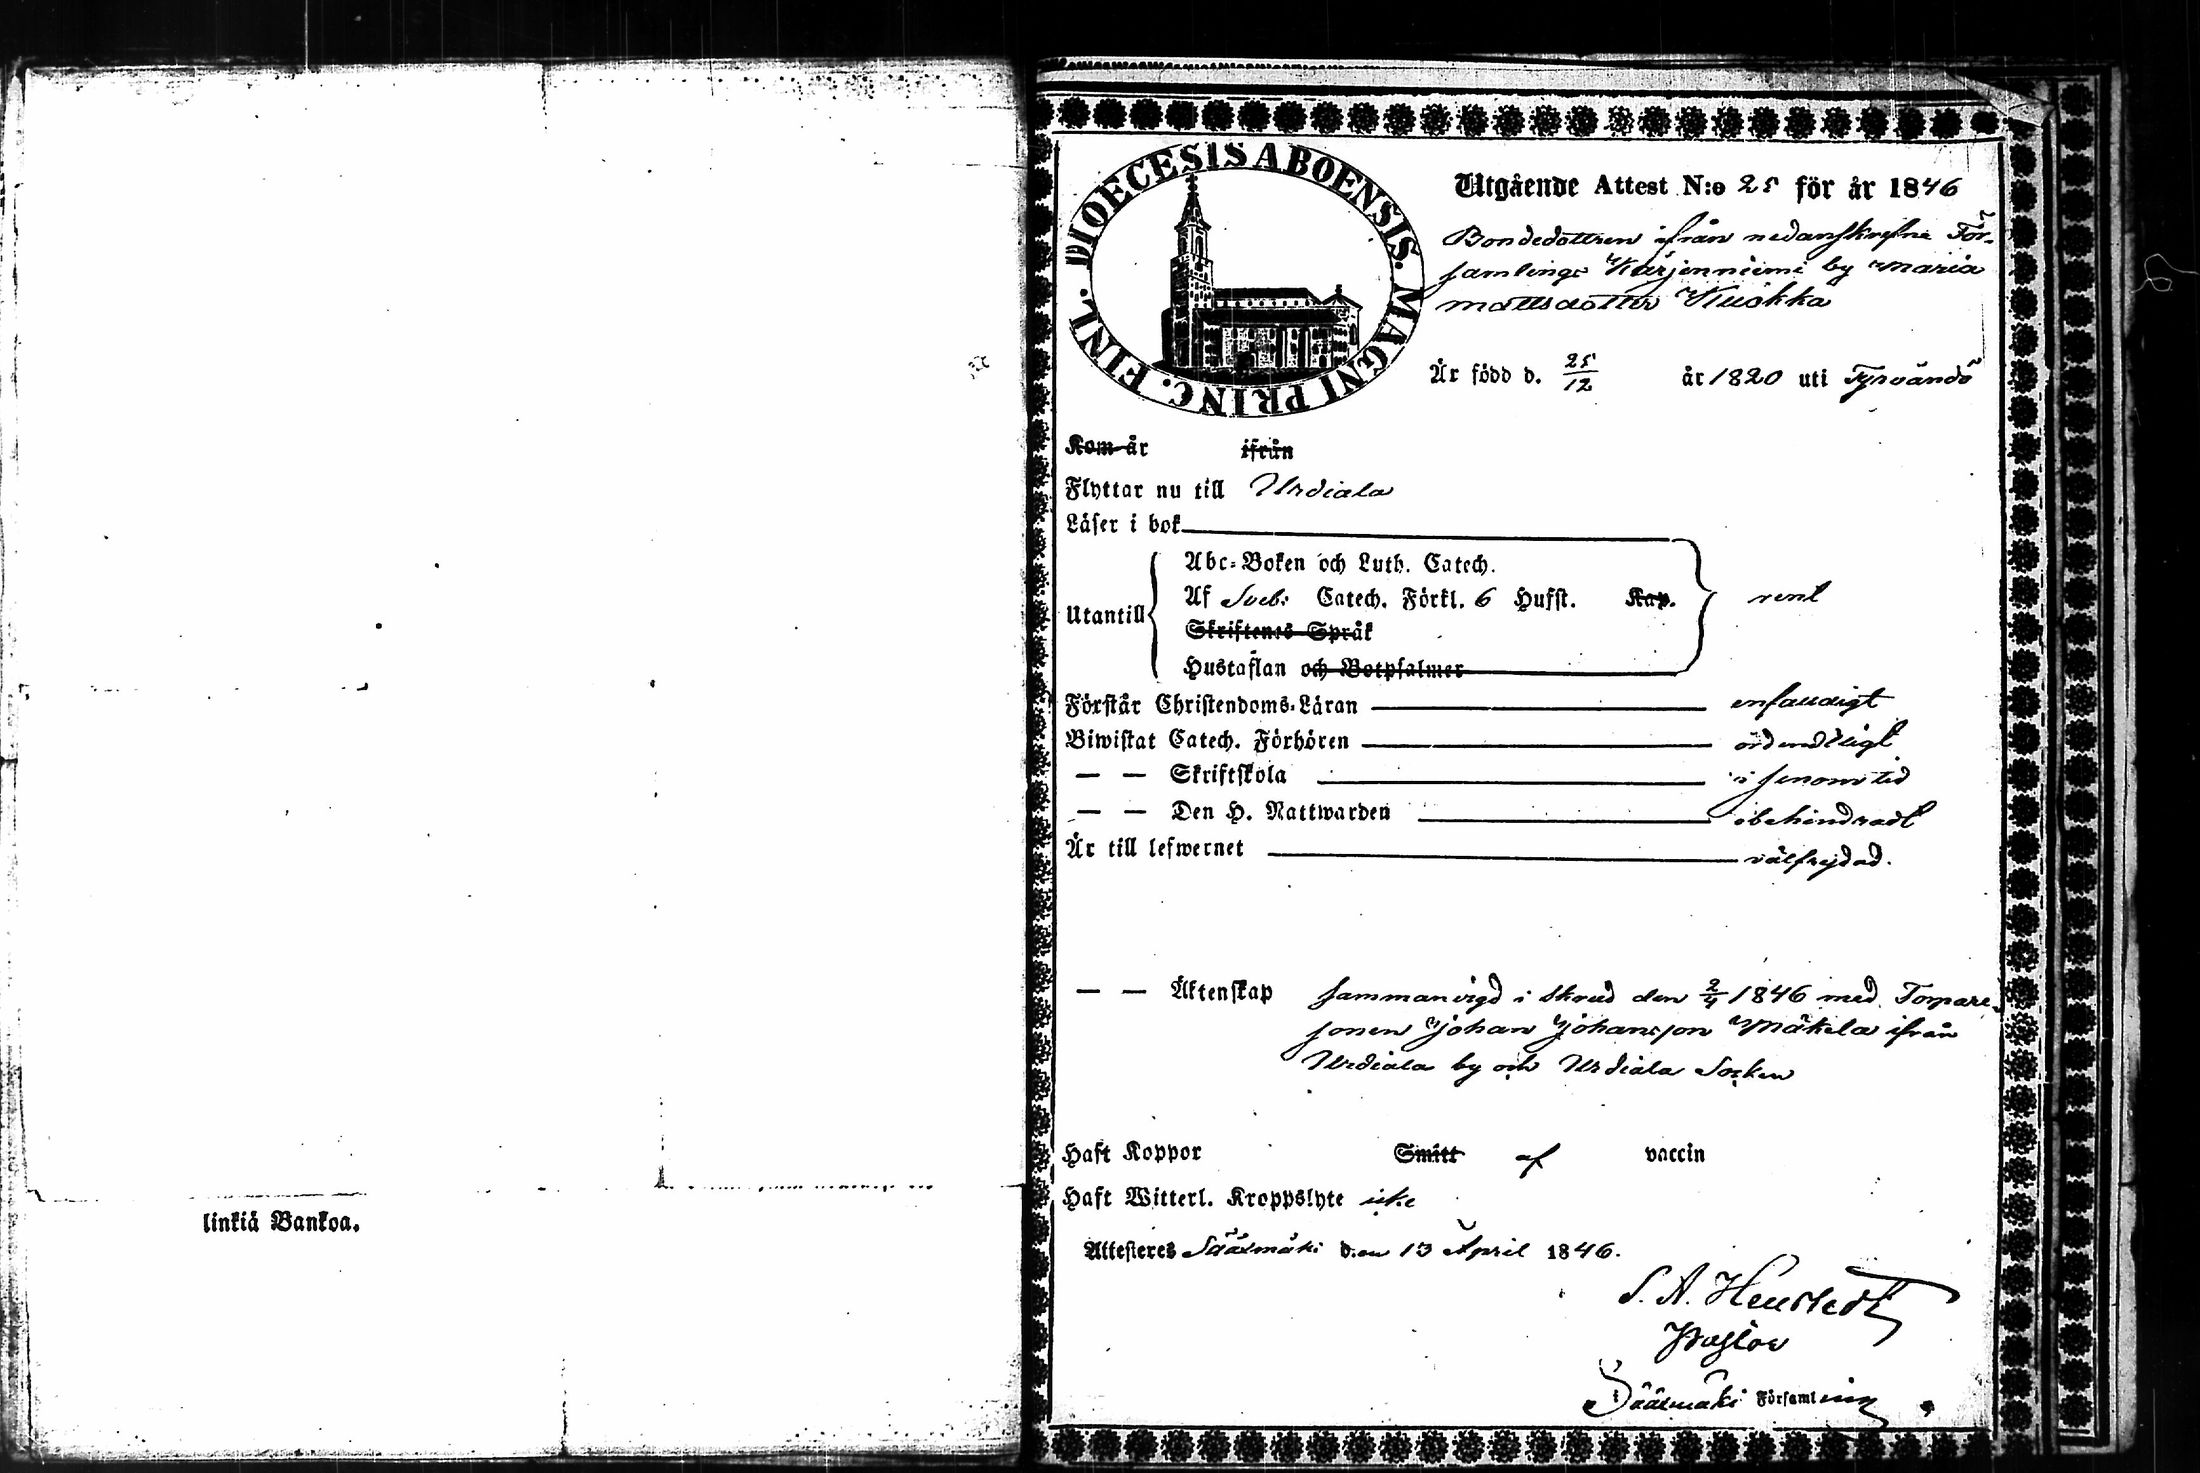 linkiä Bankoa.
DIOECESIS ABOENSIS. MAGNI PRINC. FINL.
Utgående Attest N:o 25 för år 1846
Bondedottren ifrån nedanskrefne För-
samlings Kärjenniemi by Maria
Mattsdotter Kuokka
Är född d. 25/12 år 1820 uti Tyrvändö
Kom år ifrån
Flyttar nu till Urdiala
Läser i bok
Abc-Boken och Luth. Catech.
Utantill Af Sveb: Catech. Förkl. 6 Hufst. Kap. rent
Skriftenes Språk
Hustaflan och Botpsalmer
Förstår Christendoms-Läran enfaldigt
Biwistat Catech. Förhören ordentligt
— — Skriftskola i sinom tid
— — Den H. Nattwarden obehindradt
Är till lefwernet välfrejdad.
— — Äktenskap sammanvigd i skrud den 2/4 1846 med Torpare-
sonen Johan Johansson Mäkelä ifrån
Urdiala by och Urdiala Socken
Haft Koppor Smitt af vaccin
Haft Witterl. Kroppslyte icke
Attesteres Sääxmäki den 13 April 1846.
S. A.
Pastor
Sääxmäki Församling